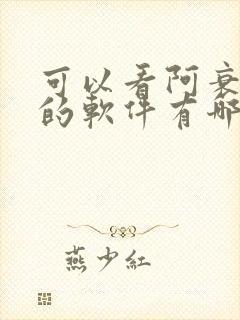 可以看阿衰
的軟件有哪
燕少紅